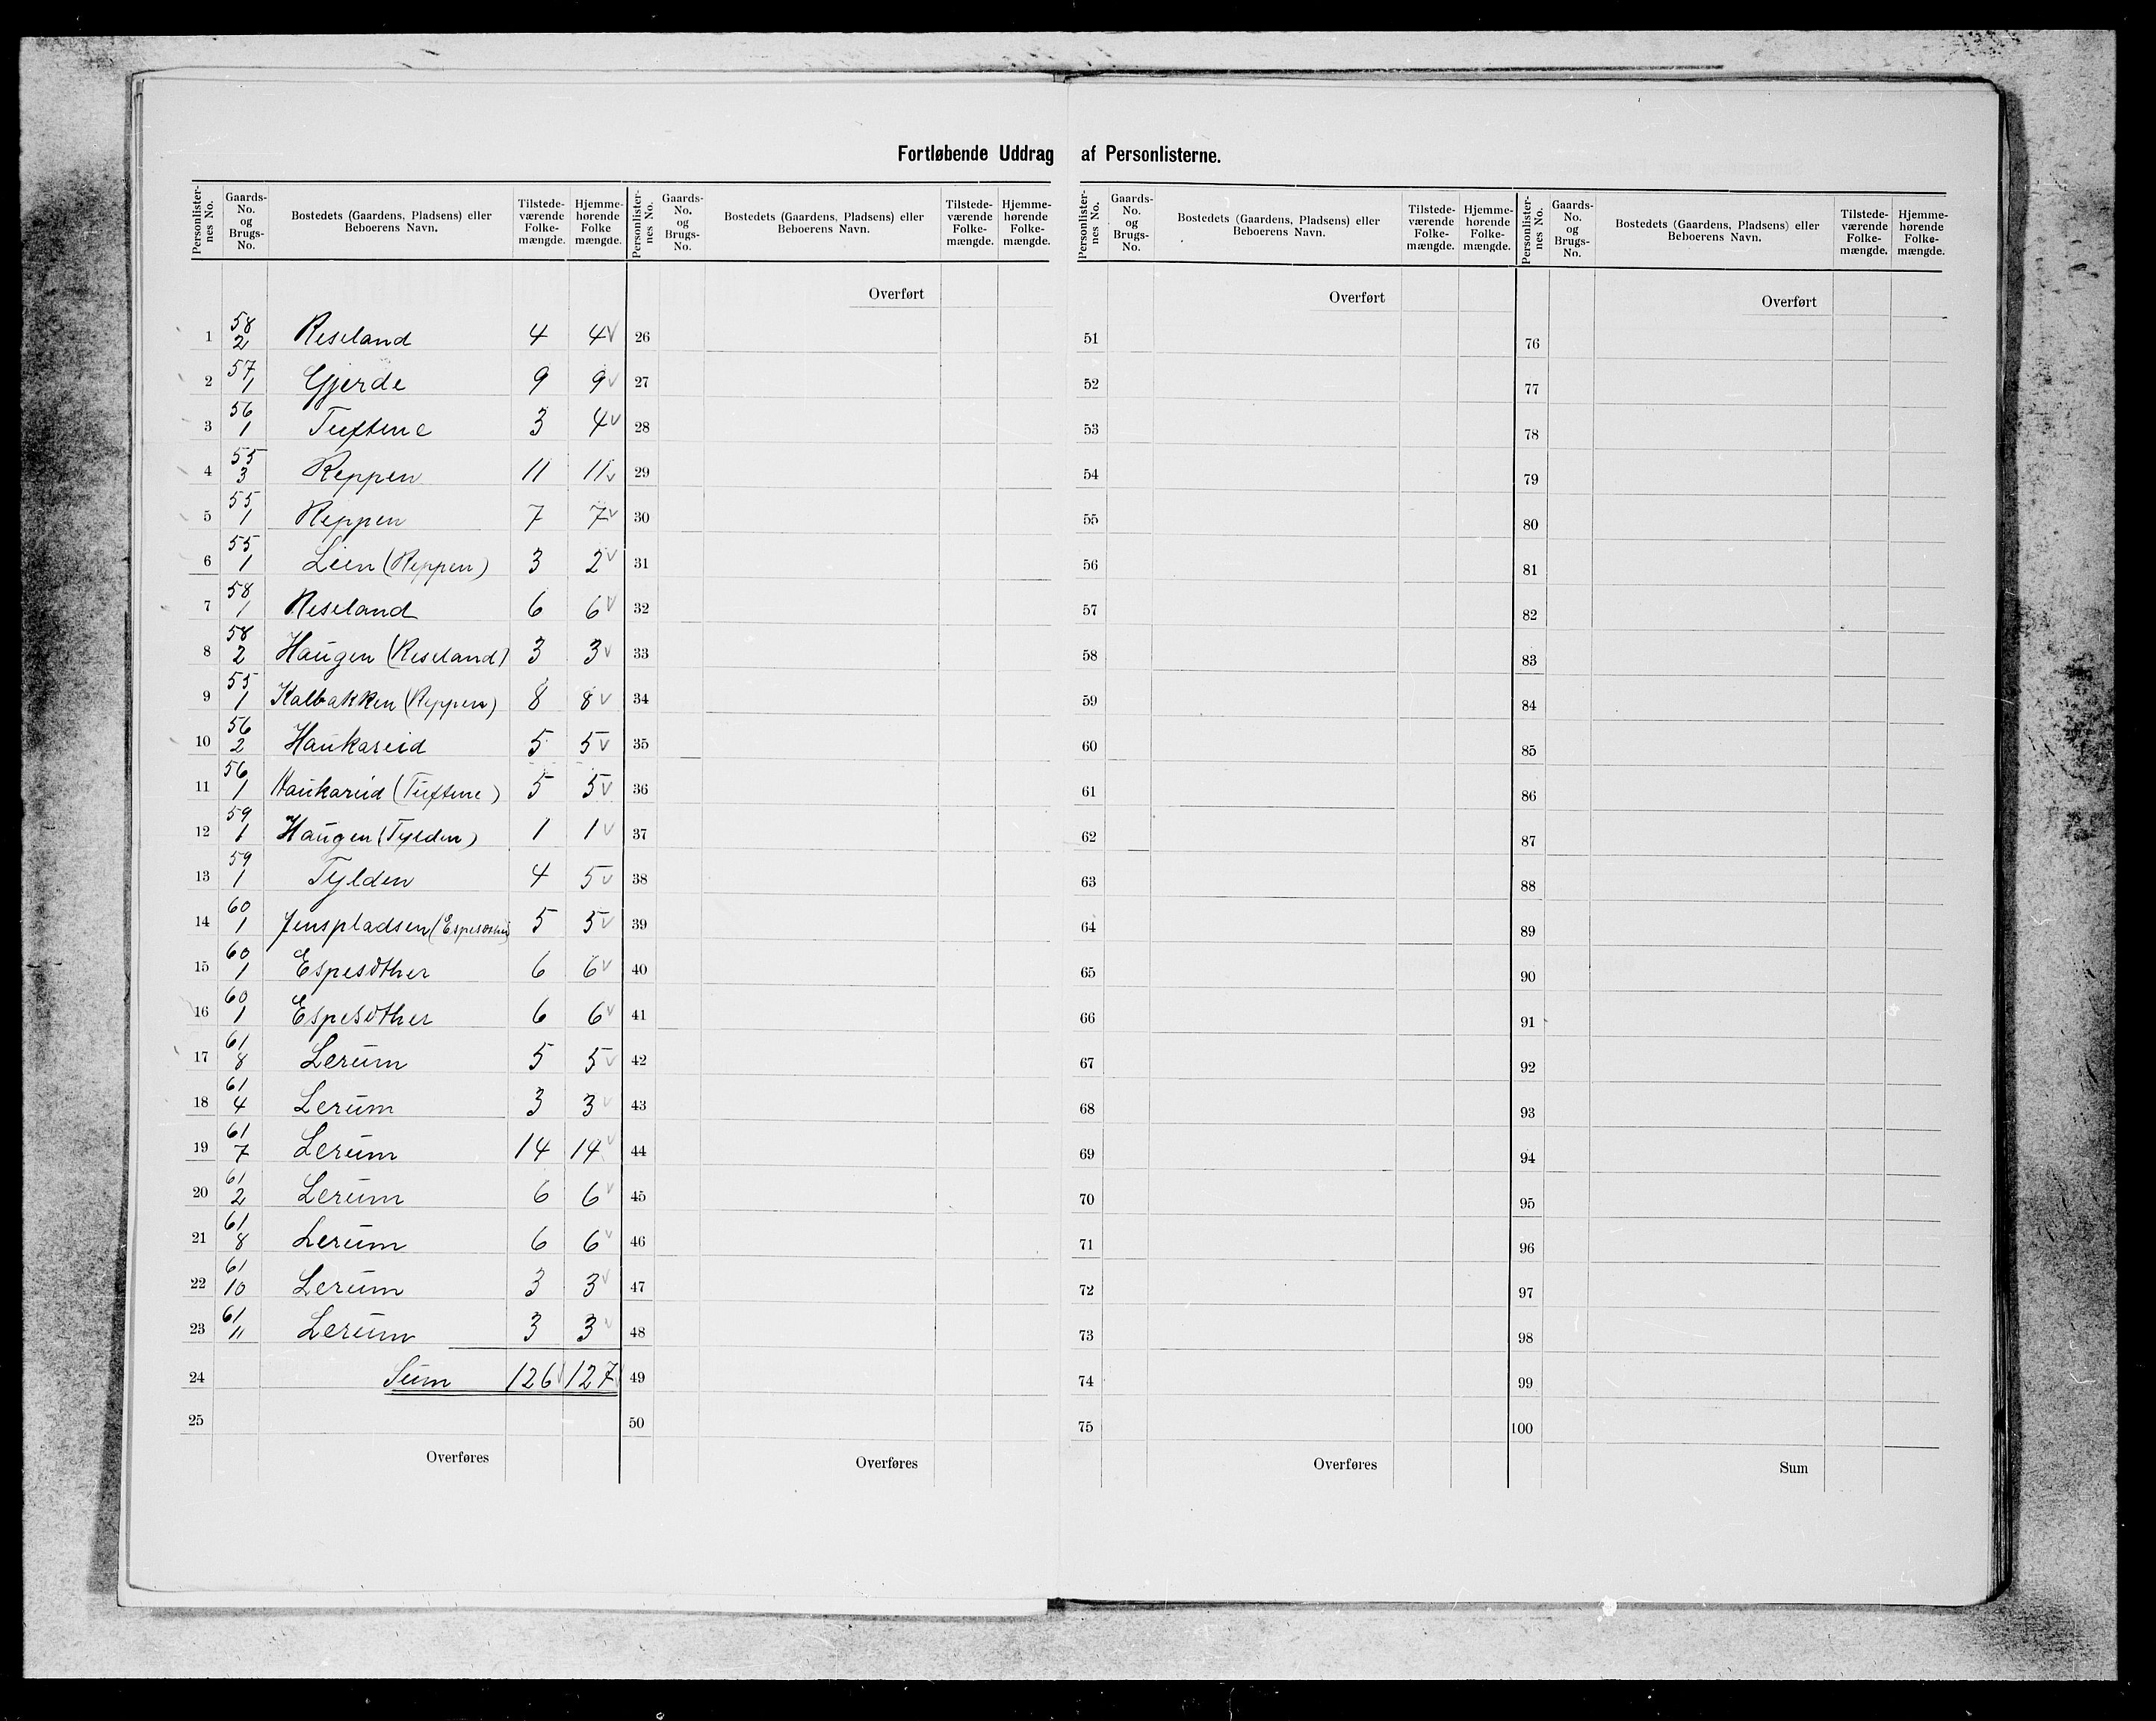 Fortløbende Uddrag af Personlisterne.
Personlister-nes No. | Gaards-No. og Brugs-No. | Bostedets (Gaardens, Pladsens) eller Beboerens Navn. | Tilstede-værende Folke-mængde. | Hjemme-hørende Folke mængde. | Personlister-nes No. | Gaards-No. og Brugs-No. | Bostedets (Gaardens, Pladsens) eller Beboerens Navn. | Tilstede-værende Folke-mængde. | Hjemme-hørende Folke-mængde. | Personlister-nes No. | Gaards-No. og Brugs-No. | Bostedets (Gaardens, Pladsens) eller Beboerens Navn. | Tilstede-værende Folke-mængde. | Hjemme-hørende Folke-mængde. | Personlister-nes No. | Gaards-No. og Brugs-No. | Bostedets (Gaardens, Pladsens) eller Beboerens Navn. | Tilstede-værende Folke-mængde. | Hjemme-hørende Folke-mængde.
Overført Overført Overført
1 58/2 Reseland 4 4 26 51 76
2 57/1 Gjerde 9 9 27 52 77
3 56/1 Tuftene 3 4 28 53 78
4 55/3 Reppen 11 11 29 54 79
5 55/1 Reppen 7 7 30 55 80
6 55/1 Lien (Reppen) 3 2 31 56 81
7 58/1 Reseland 6 6 32 57 82
8 58/2 Haugen (Reseland) 3 3 33 58 83
9 55/1 Kalbakken (Reppen) 8 8 34 59 84
10 56/2 Haukareid 5 5 35 60 85
11 56/1 Haukareid (Tuftene) 5 5 36 61 86
12 59/1 Haugen (Tylden) 1 1 37 62 87
13 59/1 Tylden 4 5 38 63 88
14 60/1 Jenspladsen (Espesøther) 5 5 39 64 89
15 60/1 Espesøther 6 6 40 65 90
16 60/1 Espesøther 6 6 41 66 91
17 61/8 Lerum 5 5 42 67 92
18 61/4 Lerum 3 3 43 68 93
19 61/7 Lerum 14 14 44 69 94
20 61/2 Lerum 6 6 45 70 95
21 61/8 Lerum 6 6 46 71 96
22 61/10 Lerum 3 3 47 72 97
23 61/11 Lerum 3 3 48 73 98
24 Sum 126 127 49 74 99
25 50 75 100
Overføres Overføres Overføres Sum